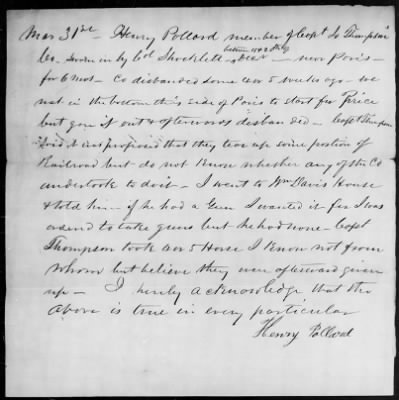 Mar 31st - Henry Pollard member of Capt Jo Thompson's
between 1 & 2 dky
Co. Sworn in by Col Shacklett - near Paris -
for 6 mos - Co disbanded some 4 or 5 weeks ago - we
met in the bottom this side of Paris to start for Price
but gave it out & afterwards disbanded - Capt Thompson
said it was proposed that they tear up some portion of
Railroad but do not know whether any of the Co
undertook to do it - I went to Wm Davis House
& told him if he had a Gun I wanted it for I was
ordered to take guns but he had none - Capt
Thompson took 4 or 5 Horse I know not from
whom but believe they were afterward given
up - I hereby acknowledge that the
above is true in every particular
Henry Pollard